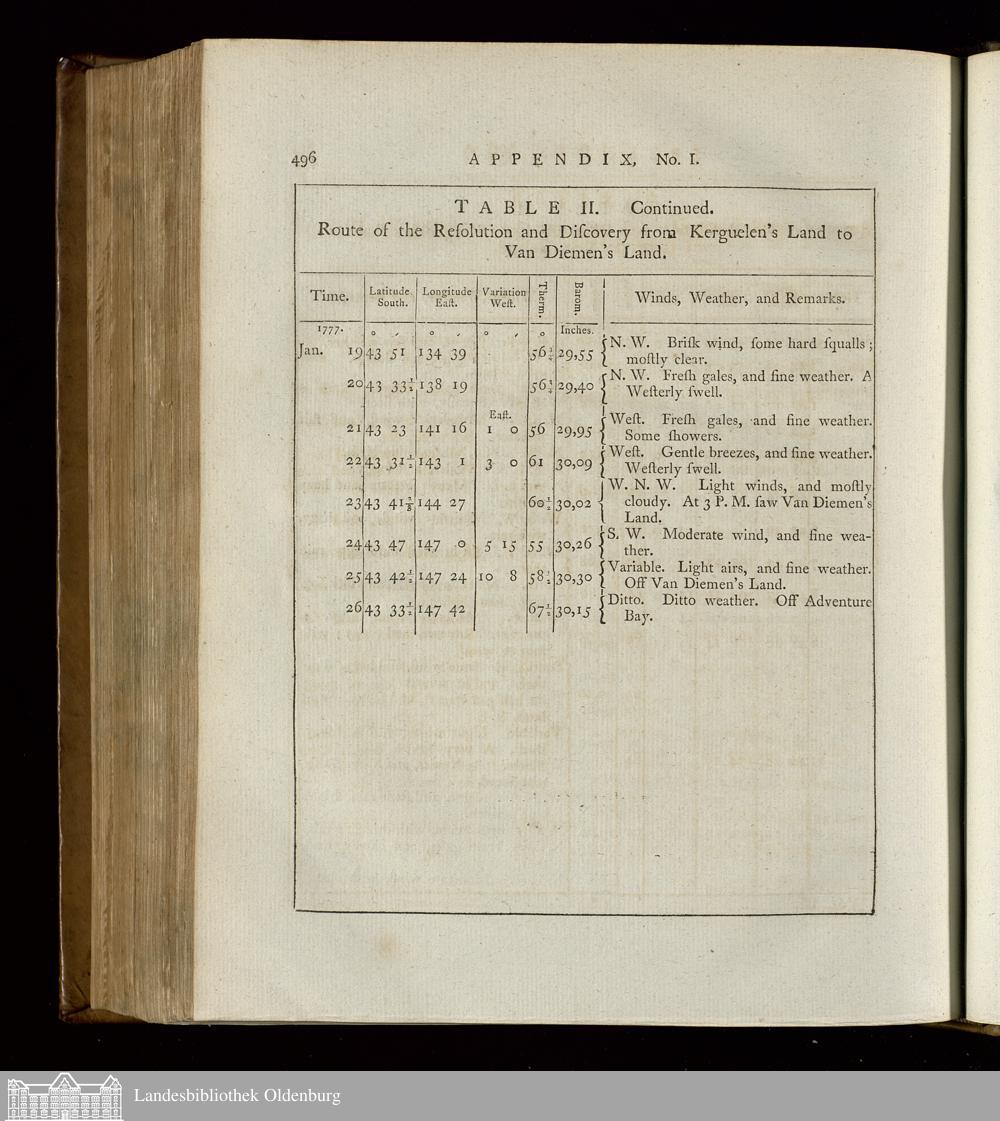 496 APPENDIX, No. I.
TABLE II. Continued.
Route of the Reſolution and Diſcovery from Kerguelen's Land to
Van Diemen's Land.
Time. Latitude South. Longitude Eaſt. Variation Weſt. Therm. Barom. Winds, Weather, and Remarks.
1777. o ′ o ′ o ′ o Inches.
Jan. 19 43 51 134 39 29,55 N. W. Briſk wind, ſome hard ſqualls;
moſtly clear.
20 43 33½ 138 19 29,40 N. W. Freſh gales, and fine weather. A
Weſterly ſwell.
Eaſt.
21 43 23 141 16 1 0 56 29,95 Weſt. Freſh gales, and fine weather.
Some ſhowers.
22 43 31½ 143 1 3 0 61 30,09 Weſt. Gentle breezes, and fine weather.
Weſterly ſwell.
23 43 144 27 60½ 30,02 W. N. W. Light winds, and moſtly
cloudy. At 3 P. M. ſaw Van Diemen's
Land.
24 43 47 147 0 5 15 55 30,26 S. W. Moderate wind, and fine wea-
ther.
25 43 42½ 147 24 10 8 58½ 30,30 Variable. Light airs, and fine weather.
Off Van Diemen's Land.
26 43 33½ 147 42 67½ 30,15 Ditto. Ditto weather. Off Adventure
Bay.
Landesbibliothek Oldenburg